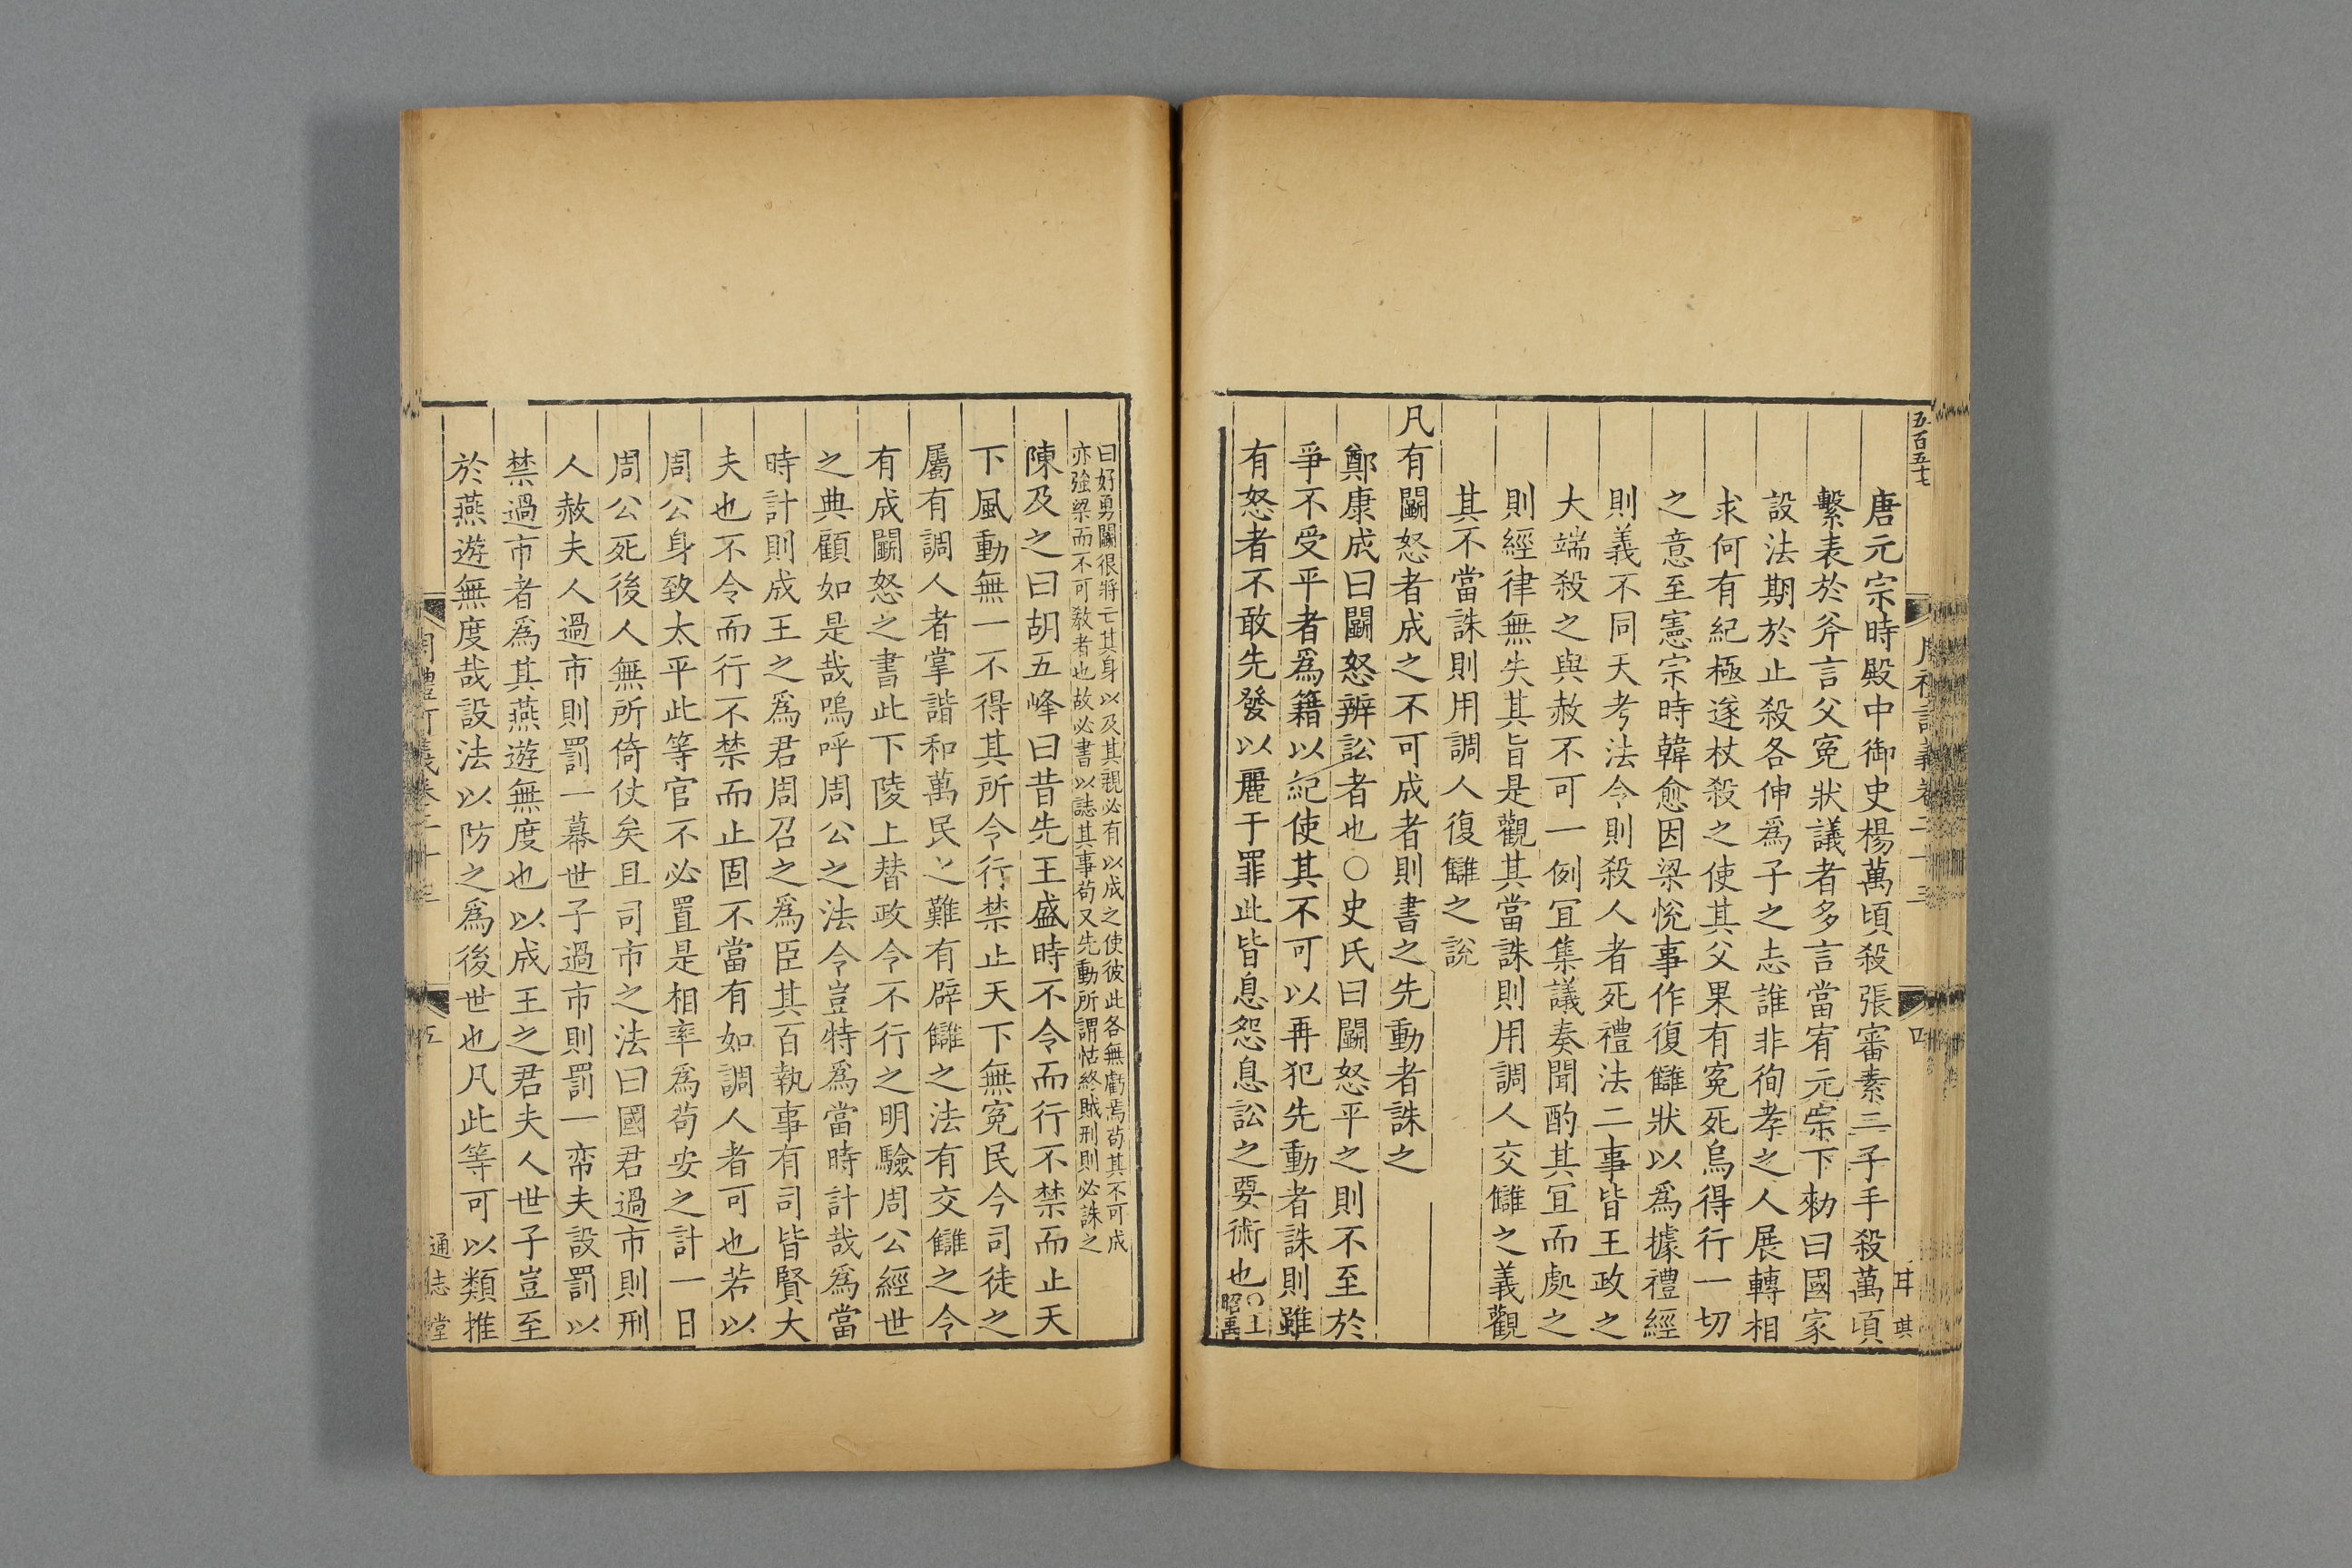 五百五七
唐元宗時殿中御史楊萬頃殺張審素三子手殺萬頃
繫表於斧言父寃狀議者多言當宥元宗下勑曰國家
設法期於止殺各伸爲子之志誰非徇孝之人展轉相
求何有紀極遂杖殺之使其父果有寃死烏得行一切
之意至憲宗時韓愈因梁悅事作復讎狀以爲據禮經
則義不同天考法令則殺人者死禮法二事皆王政之
大端殺之與赦不可一例宜集議奏聞酌其宜而處之
則經律無失其旨是觀其當誅則用調人交讎之義觀
其不當誅則用調人復讎之說
凡有鬭怒者成之不可成者則書之先動者誅之
鄭康成曰鬭怒辨訟者也○史氏曰鬭怒平之則不至於
爭不受平者爲籍以紀使其不可以再犯先動者誅則雖
有怒者不敢先發以麗于罪此皆息怨息訟之要術也○王昭禹
曰好勇鬭很將亡其身以及其親必有以成之使彼此各無虧焉苟其不可成
亦强梁而不可敎者也故必書以誌其事苟又先動所謂怙終賊刑則必誅之
陳及之曰胡五峰曰昔先王盛時不令而行不禁而止天
下風動無一不得其所令行禁止天下無寃民今司徒之
屬有調人者掌諧和萬民之難有辟讎之法有交讎之令
有成鬭怒之書此下陵上替政令不行之明驗周公經世
之典顧如是哉嗚呼周公之法令豈特爲當時計哉爲當
時計則成王之爲君周召之爲臣其百執事有司皆賢大
夫也不令而行不禁而止固不當有如調人者可也若以
周公身致太平此等官不必置是相率爲苟安之計一日
周公死後人無所倚仗矣且司市之法曰國君過市則刑
人赦夫人過市則罰一幕世子過市則罰一帟夫設罰以
禁過市者爲其燕遊無度也以成王之君夫人世子豈至
於燕遊無度哉設法以防之爲後世也凡此等可以類推
周禮訂義卷二十三
五
通志堂